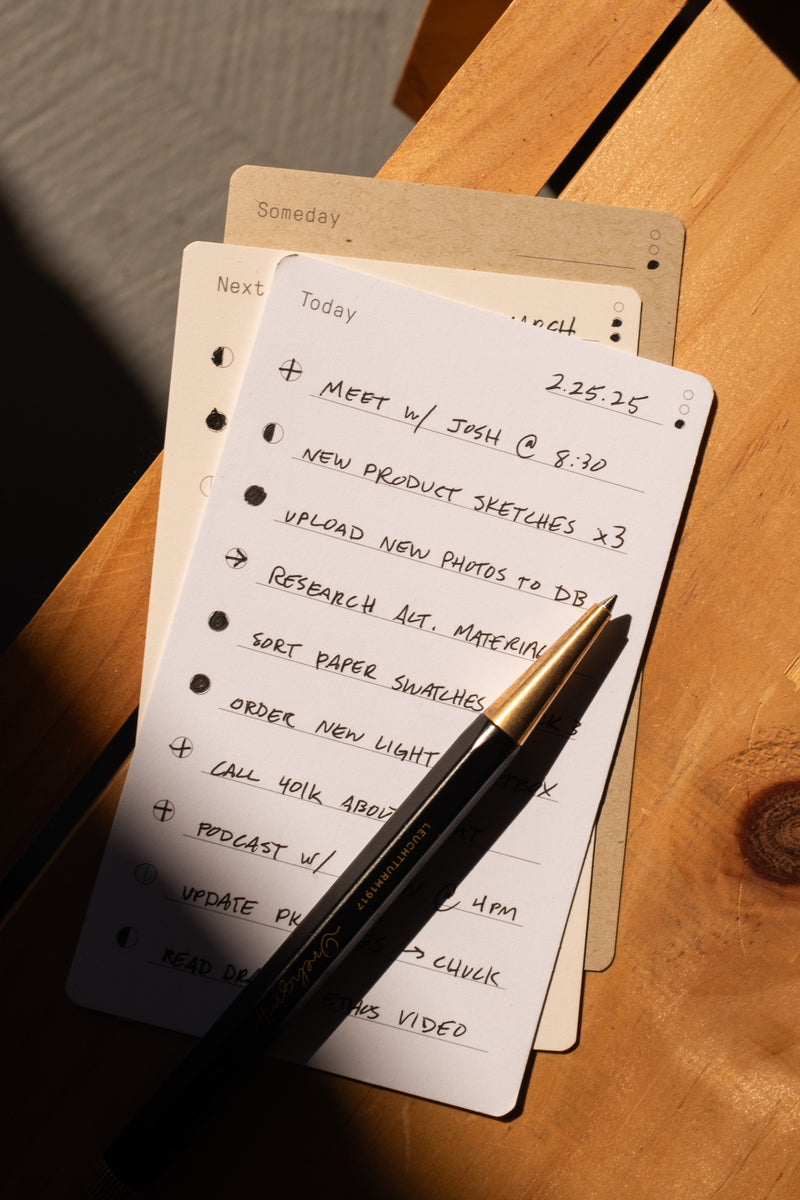 Someday
Next
ARCH
Today
2.25.25
MEET W/ JOSH @ 8:30
NEW PRODUCT SKETCHES x3
UPLOAD NEW PHOTOS TO DB
RESEARCH ALT. MATERIAL
SORT PAPER SWATCHES
ORDER NEW LIGHT TBOX
CALL 401K ABOUT
PODCAST W/ @ 4PM
UPDATE → CHUCK
READ ETHOS VIDEO
LEUCHTTURM1917